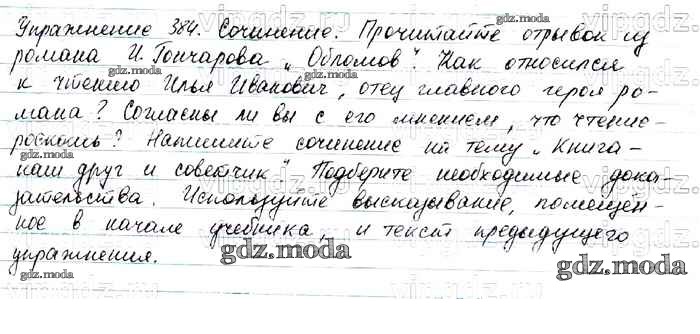 Упражнение 384. Сочинение. Прочитайте отрывок из
романа И. Гончарова „Обломов“. Как относился
к чтению Илья Иванович, отец главного героя ро-
мана? Согласны ли вы с его мнением, что чтение-
роскошь? Напишите сочинение на тему „Книга-
наш друг и советчик“ Подберите необходимые дока-
зательства. Используйте высказывание, помещён-
ное в начале учебника, и текст предыдущего
упражнения.
gdz.moda
gdz.moda
gdz.moda
gdz.moda
gdz.moda
gdz.moda
gdz.moda
gdz.moda